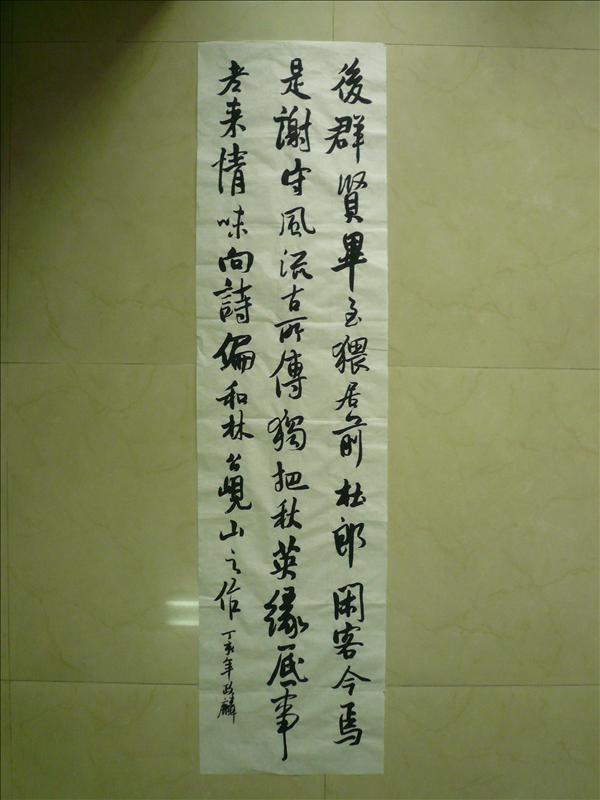 後群賢畢至猥居前杜郎閑客今焉
是謝守風流古所傳獨把秋英緣底事
老来情味向詩偏和林公峴山之作
丁亥年政麟